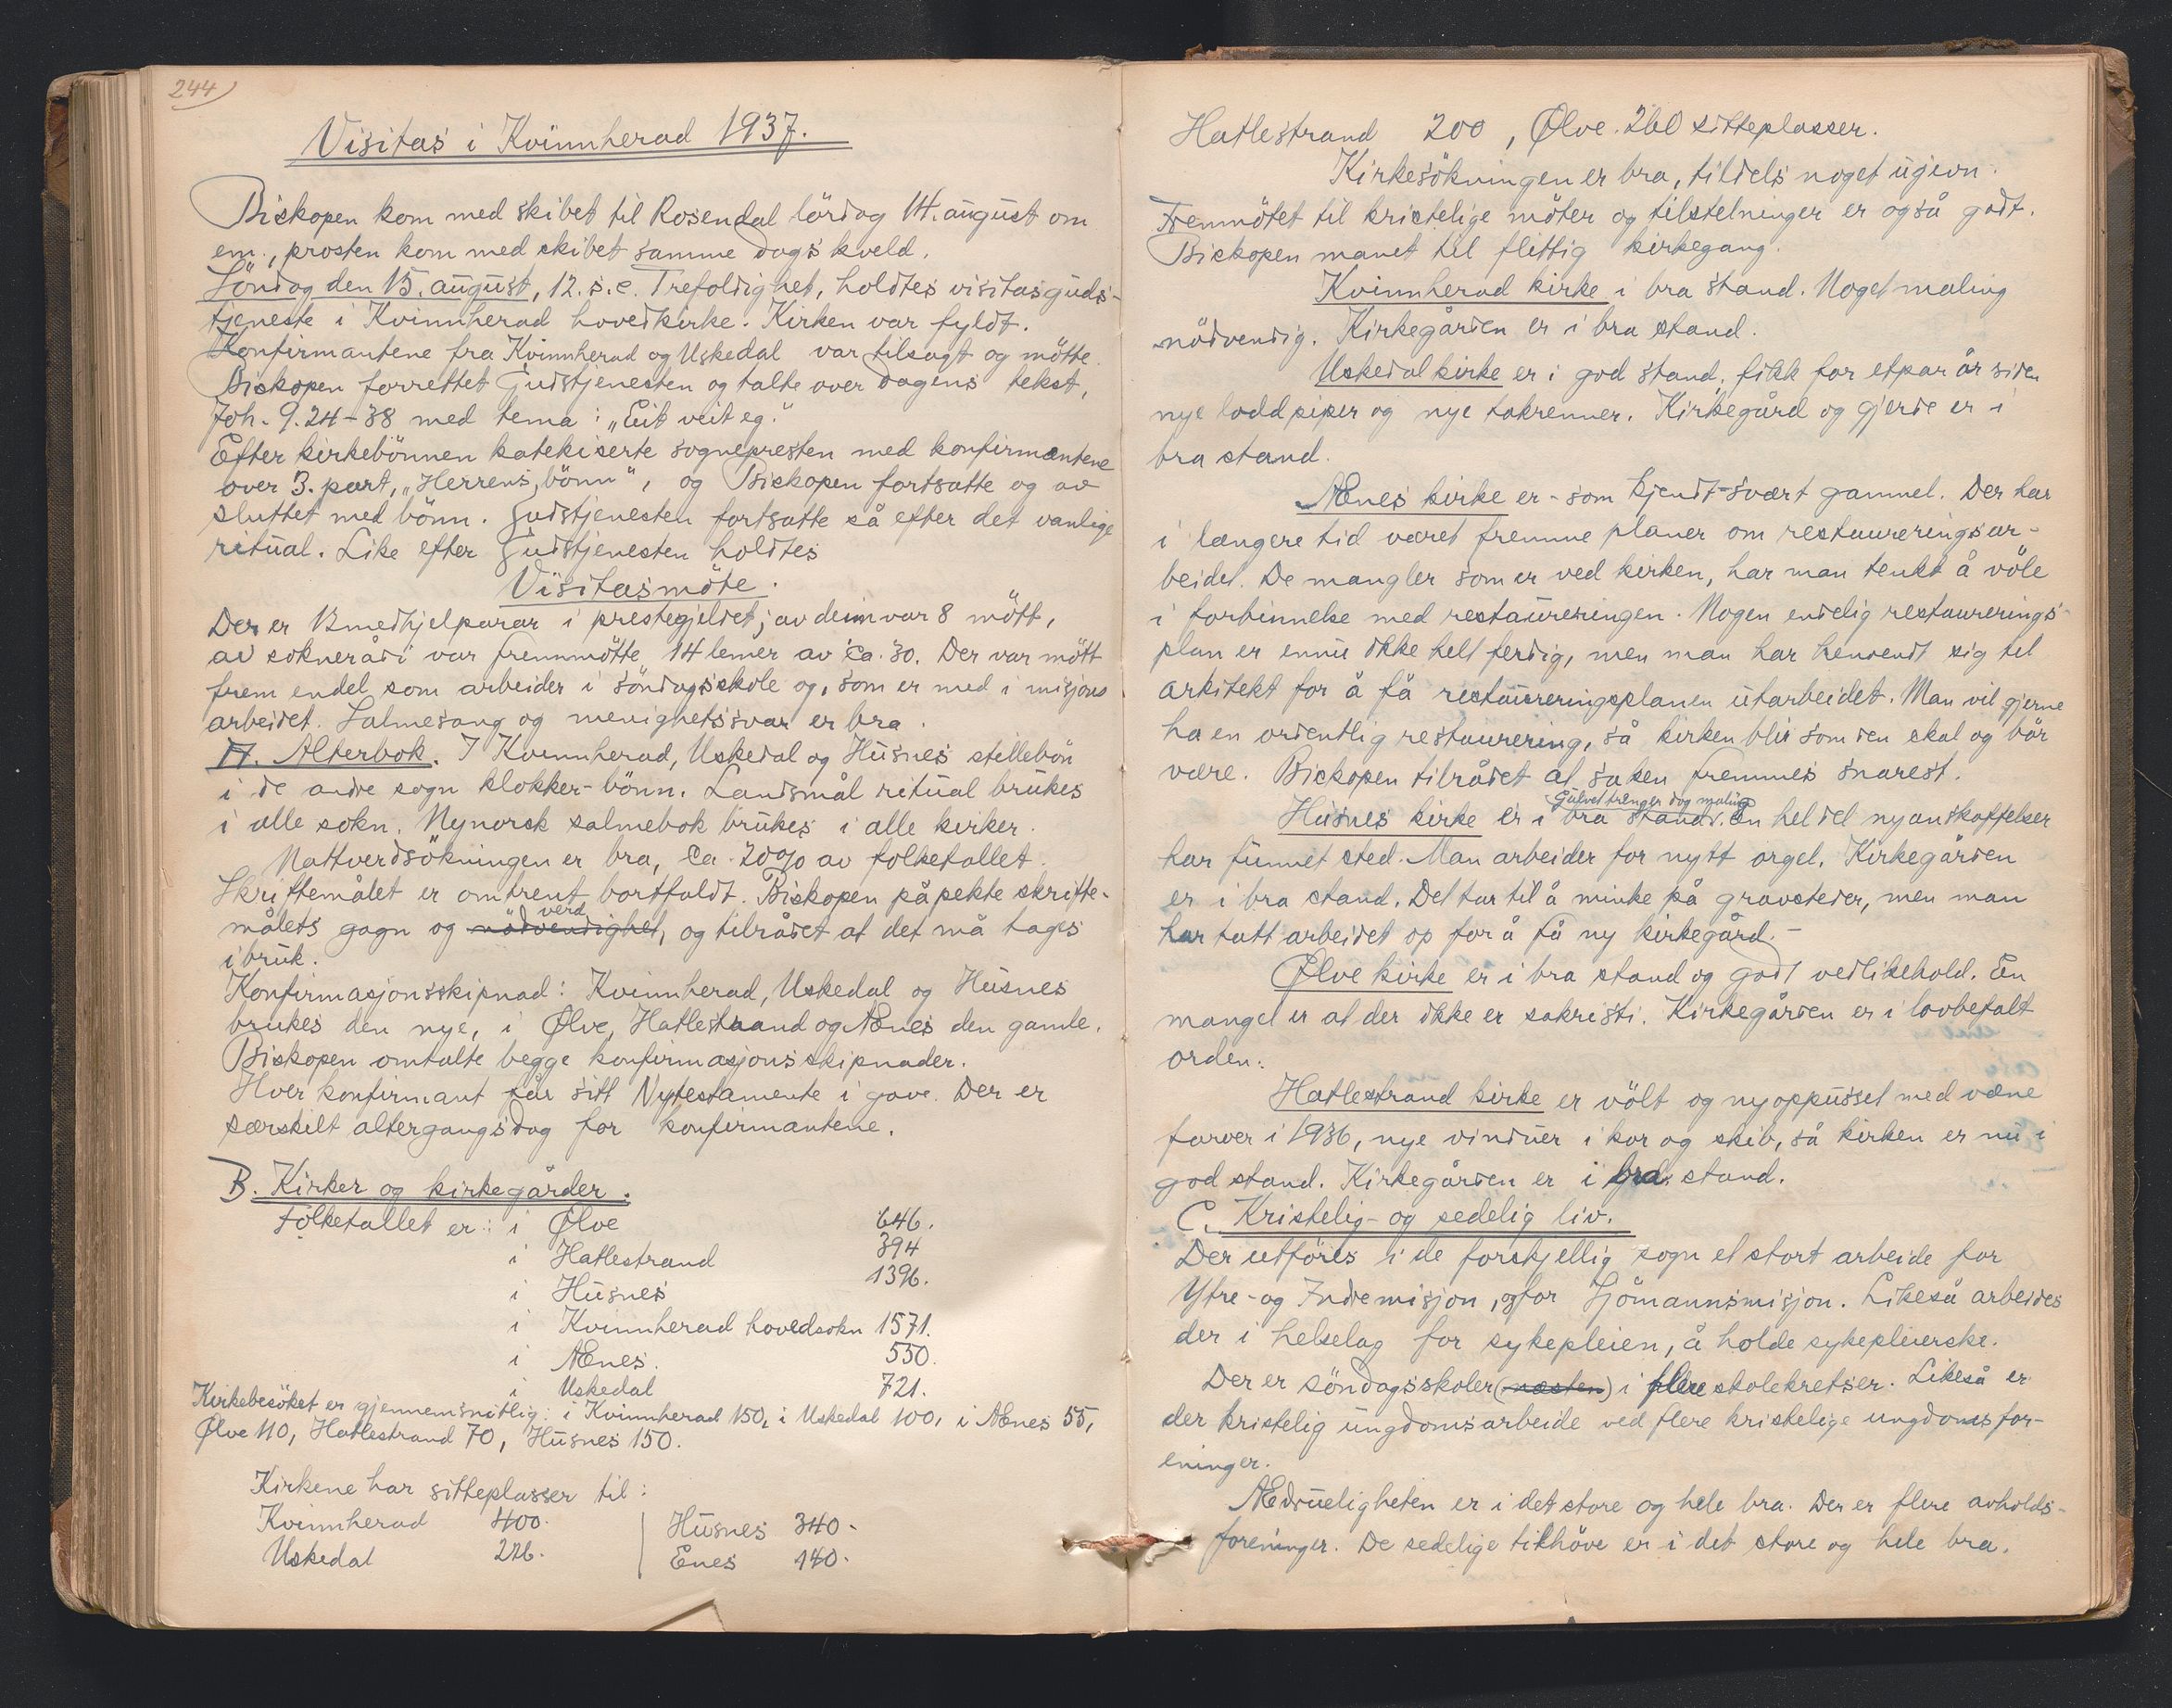 244
Visitas i Kvinnherad 1937.
Biskopen kom med skibet til Rosendal lördag 14. august om
em., prosten kom med skibet samme dags kveld.
Söndag den 15. august, 12. s. e. Trefoldighet, holdtes visitasguds-
tjeneste i Kvinnherad hovedkirke. Kirken var fyldt.
Konfirmantene fra Kvinnherad og Uskedal var tilsagt og mötte.
Biskopen forrettet Gudstjenesten og talte over dagens tekst,
Joh. 9. 24-38 med tema: „Eit veit eg."
Efter kirkebönnen katekiserte sognepresten med konfirmantene
over 3. part, „Herrens bönn", og Biskopen fortsatte og av
sluttet med bönn. Gudstjenesten fortsatte så efter det vanlige
ritual. Like efter Gudstjenesten holdtes
Visitasmöte.
Der er 13 medhjelparar i prestegjeldet; av deim var 8 mött,
av sokneråd var fremmötte 14 lemer av ca. 30. Der var mött
frem endel som arbeider i söndagsskole og, som er med i misjons
arbeidet. Salmesang og menighetssvar er bra.
A. Alterbok. I Kvinnherad, Uskedal og Husnes stillebön
i de andre sogn klokker-bönn. Landsmål ritual brukes
i alle sokn. Nynorsk salmebok brukes i alle kirker.
Nattverdsökningen er bra, ca. 20% av folketallet.
Skriftemålet er omtrent bortfaldt. Biskopen påpekte skrifte-
målets gagn og nödvendighet verd, og tilrådet at det må tages
i bruk.
Konfirmasjonsskipnad: Kvinnherad, Uskedal og Husnes
brukes den nye, i Ølve, Hatlestrand og Ænes den gamle.
Biskopen omtalte begge konfirmasjonsskipnader.
Hver konfirmant får sitt Nytestamente i gave. Der er
særskilt altergangsdag for konfirmantene.
B. Kirker og kirkegårder.
Folketallet er: i Ølve 646.
i Hatlestrand 394
i Husnes 1396.
i Kvinnherad hovedsokn 1571.
i Ænes. 550.
i Uskedal 721.
Kirkebesöket er gjennemsnitlig: i Kvinnherad 150, i Uskedal 100, i Ænes 55,
Ølve 110, Hatlestrand 70, Husnes 150.
Kirkene har sitteplasser til:
Kvinnherad 400. Husnes 340.
Uskedal Enes 140.
Hatlestrand 200, Ølve. 260 sitteplasser.
Kirkesökningen er bra, tildels noget ujevn.
Fremmötet til kristelige möter og tilstelninger er også godt.
Biskopen manet til flittig kirkegang.
Kvinnherad kirke i bra stand. Noget maling
nödvendig. Kirkegården er i bra stand.
Uskedal kirke er i god stand, fikk for etpar år siden
nye loddpiper og nye takrenner. Kirkegård og gjerde er i
bra stand.
Ænes kirke er - som kjendt - svært gammel. Der har
i længere tid været fremme planer om restaureringsar-
beidet. De mangler som er ved kirken, har man tenkt å völe
i forbinnelse med restaureringen. Nogen endelig restaurerings-
plan er ennu ikke helt ferdig, men man har henvendt sig til
arkitekt for å få restaureringsplanen utarbeidet. Man vil gjerne
ha en ordentlig restaurering, så kirken blir som den skal og bör
være. Biskopen tilrådet at saken fremmes snarest.
Gulvet trenger dog maling
Husnes kirke er i bra stand. En hel del nyanskaffelser
har funnet sted. Man arbeider for nytt orgel. Kirkegården
er i bra stand. Det tar til å minke på gravsteder, men man
har tatt arbeidet op for å få ny kirkegård. -
Ølve kirke er i bra stand og godt vedlikehold. En
mangel er at der ikke er sakristi. Kirkegården er i lovbefalt
orden.
Hatlestrand kirke er völt og nyoppusset med væne
farver i 1936, nye vinduer i kor og skib, så kirken er nu i
god stand. Kirkegården er i bra stand.
C. Kristelig- og sedelig liv.
Der utföres i de forskjellig sogn et stort arbeide for
Ytre- og Indremisjon, og for Sjömannsmisjon. Likeså arbeides
der i helselag for sykepleien, å holde sykepleierske.
Der er söndagsskoler (næsten) i flere skolekretser. Likeså er
der kristelig ungdomsarbeide ved flere kristelige ungdomsfor-
eninger.
Ædrueligheten er i det store og hele bra. Der er flere avholds-
foreninger. De sedelige tilhöve er i det store og hele bra.